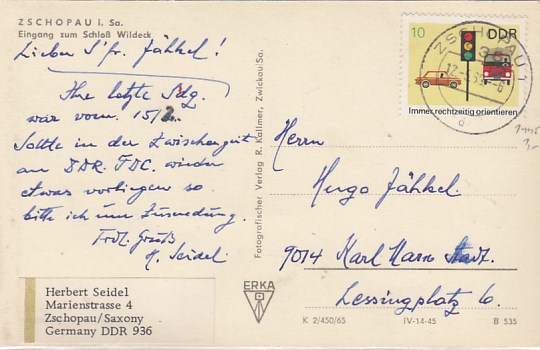 ZSCHOPAU i. Sa.
Eingang zum Schloß Wildeck
Lieber S'fr. Jähkel!
Ihre letzte Sdg.
war vom. 15/2.
Sollte in der Zwischenzeit
an DDR. FDC. wieder
etwas vorliegen so
bitte ich um Zusendung.
Frdl. Gruß
H. Seidel
Herbert Seidel
Marienstrasse 4
Zschopau/Saxony
Germany DDR 936
Fotografischer Verlag R. Kallmer, Zwickau/Sa.
ERKA
K 2/450/65 IV-14-45 B 535
10 DDR
Immer rechtzeitig orientieren
ZSCHOPAU 1
Herrn
Hugo Jähkel.
9014 Karl Marx Stadt.
Lessingplatz 6.